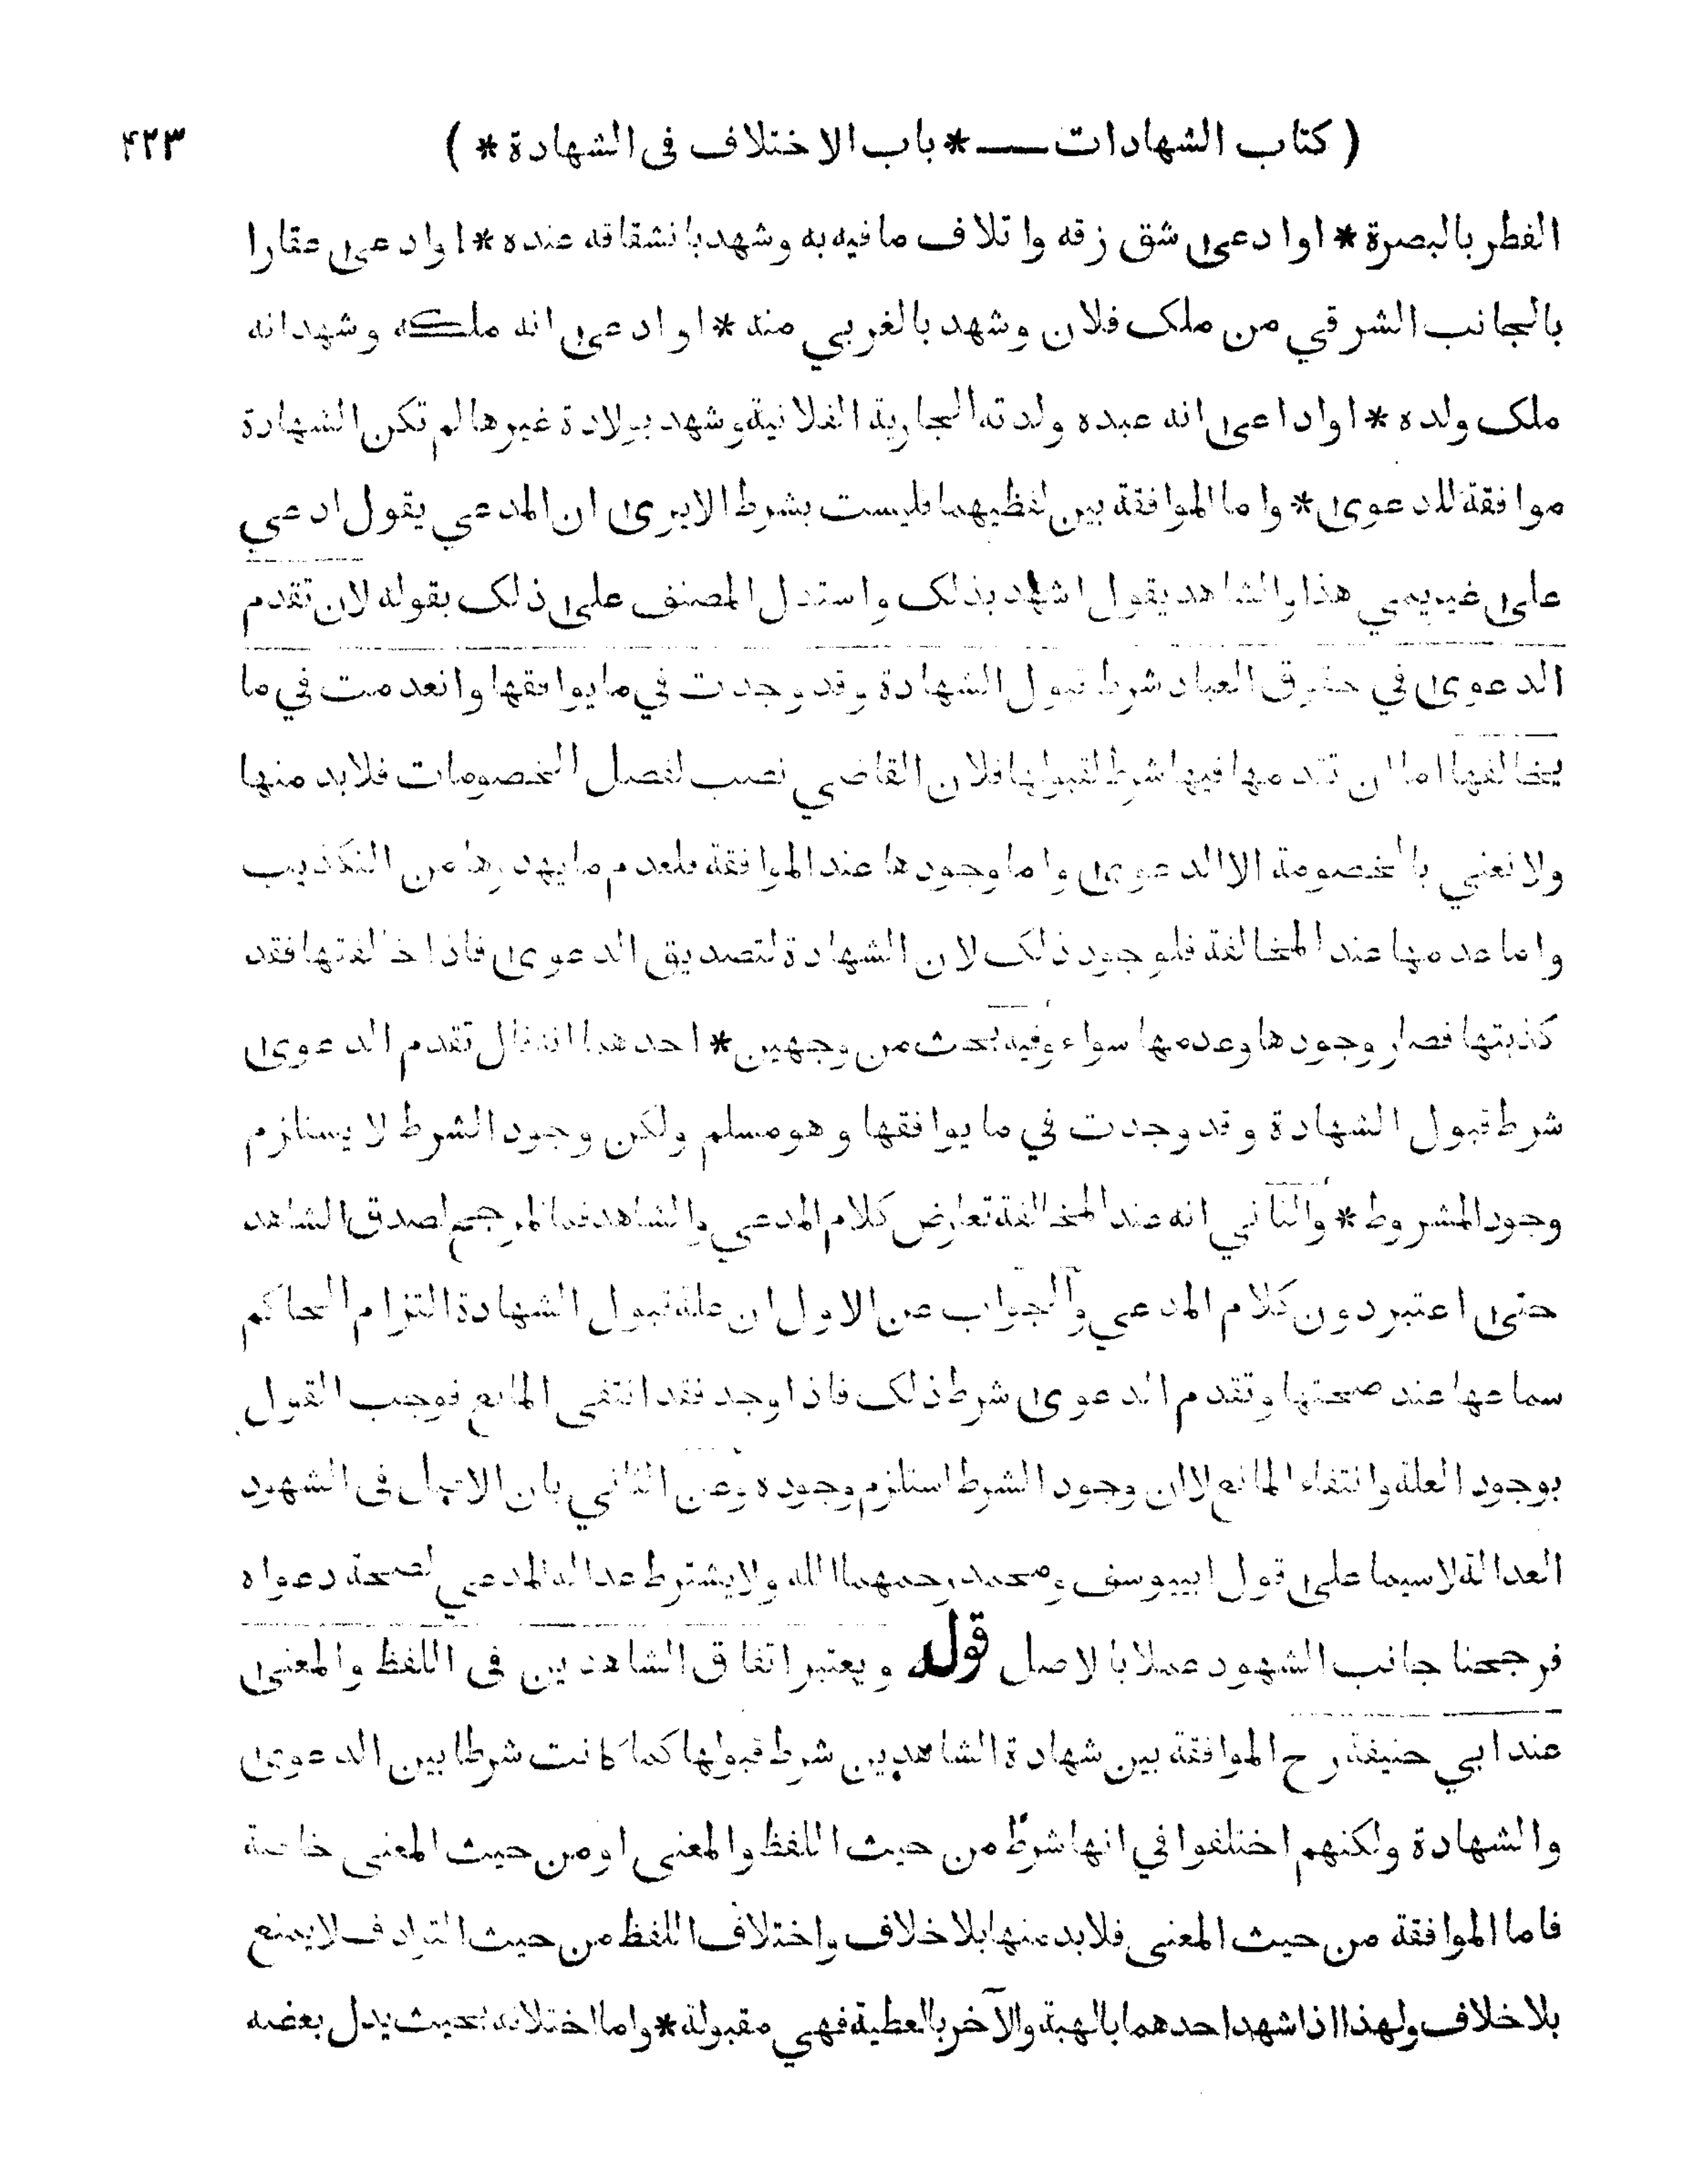 ( كتاب الشهادات — * باب الاختلاف في الشهادة * ) ۴۲۳
الفطر بالبصرة * او ادعى شق زقه واتلاف ما فيه به وشهد بانشقاقه عنده * او ادعى عقارا
بالجانب الشرقي من ملك فلان وشهد بالغربي منه * او ادعى انه ملكه وشهد انه
ملك ولده * او اداعى انه عبده ولدته الجارية الفلانية وشهد بولادة غيرها لم تكن الشهادة
موافقة للدعوى * واما الموافقة بين لفظيهما فليست بشرط الا يرى ان المدعي يقول ادعي
على غريمي هذا والشاهد يقول اشهد بذلك واستدل المصنف على ذلك بقوله لان تقدم
الدعوى في حقوق العباد شرط قبول الشهادة وقد وجدت في ما يوافقها وانعدمت في ما
يخالفها اما ان تقدمها فيها شرط لقبولها فلان القاضي نصب لفصل الخصومات فلابد منها
ولا نعني بالخصومة الا الدعوى واما وجودها عند الموافقة فلعدم ما يهدرها من التكذيب
واما عدمها عند المخالفة فلوجود ذلك لان الشهادة لتصديق الدعوى فاذا خالفتها فقد
كذبتها فصار وجودها وعدمها سواء وفيه بحث من وجهين * احدهما انه قال تقدم الدعوى
شرط قبول الشهادة وقد وجدت في ما يوافقها وهو مسلم ولكن وجود الشرط لا يستلزم
وجود المشروط * والثاني انه عند المخالفة تعارض كلام المدعي والشاهد فما المرجح لصدق الشاهد
حتى اعتبر دون كلام المدعي والجواب عن الاول ان علة قبول الشهادة التزام الحاكم
سماعها عند صحتها وتقدم الدعوى شرط ذلك فاذا وجد فقد انتفى المانع فوجب القول
بوجود العلة وانتفاء المانع لا ان وجود الشرط استلزم وجوده وعن الثاني بان الاصل في الشهود
العدالة لا سيما على قول ابييوسف ومحمد رحمهما الله ولا يشترط عدالة المدعي لصحة دعواه
فرجحنا جانب الشهود عملا بالاصل قوله ويعتبر اتفاق الشاهدين في اللفظ والمعنى
عند ابي حنيفة رح الموافقة بين شهادة الشاهدين شرط قبولها كما كانت شرطا بين الدعوى
والشهادة ولكنهم اختلفوا في انها شرط من حيث اللفظ والمعنى او من حيث المعنى خاصة
فاما الموافقة من حيث المعنى فلابد منها بلا خلاف واختلاف اللفظ من حيث الترادف لا يمنع
بلا خلاف ولهذا اذا شهد احدهما بالهبة والآخر بالعطية فهي مقبولة * واما اختلافه بحيث يدل بعضه